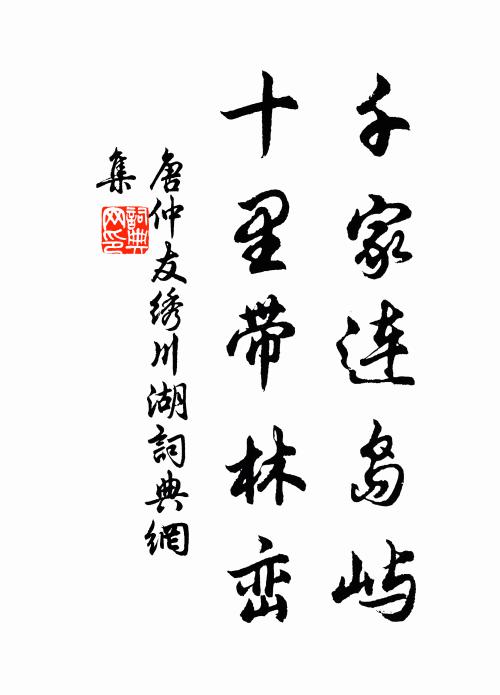 千家连岛屿
十里带林峦
唐仲友绣川湖詞典網
集
詞典网印